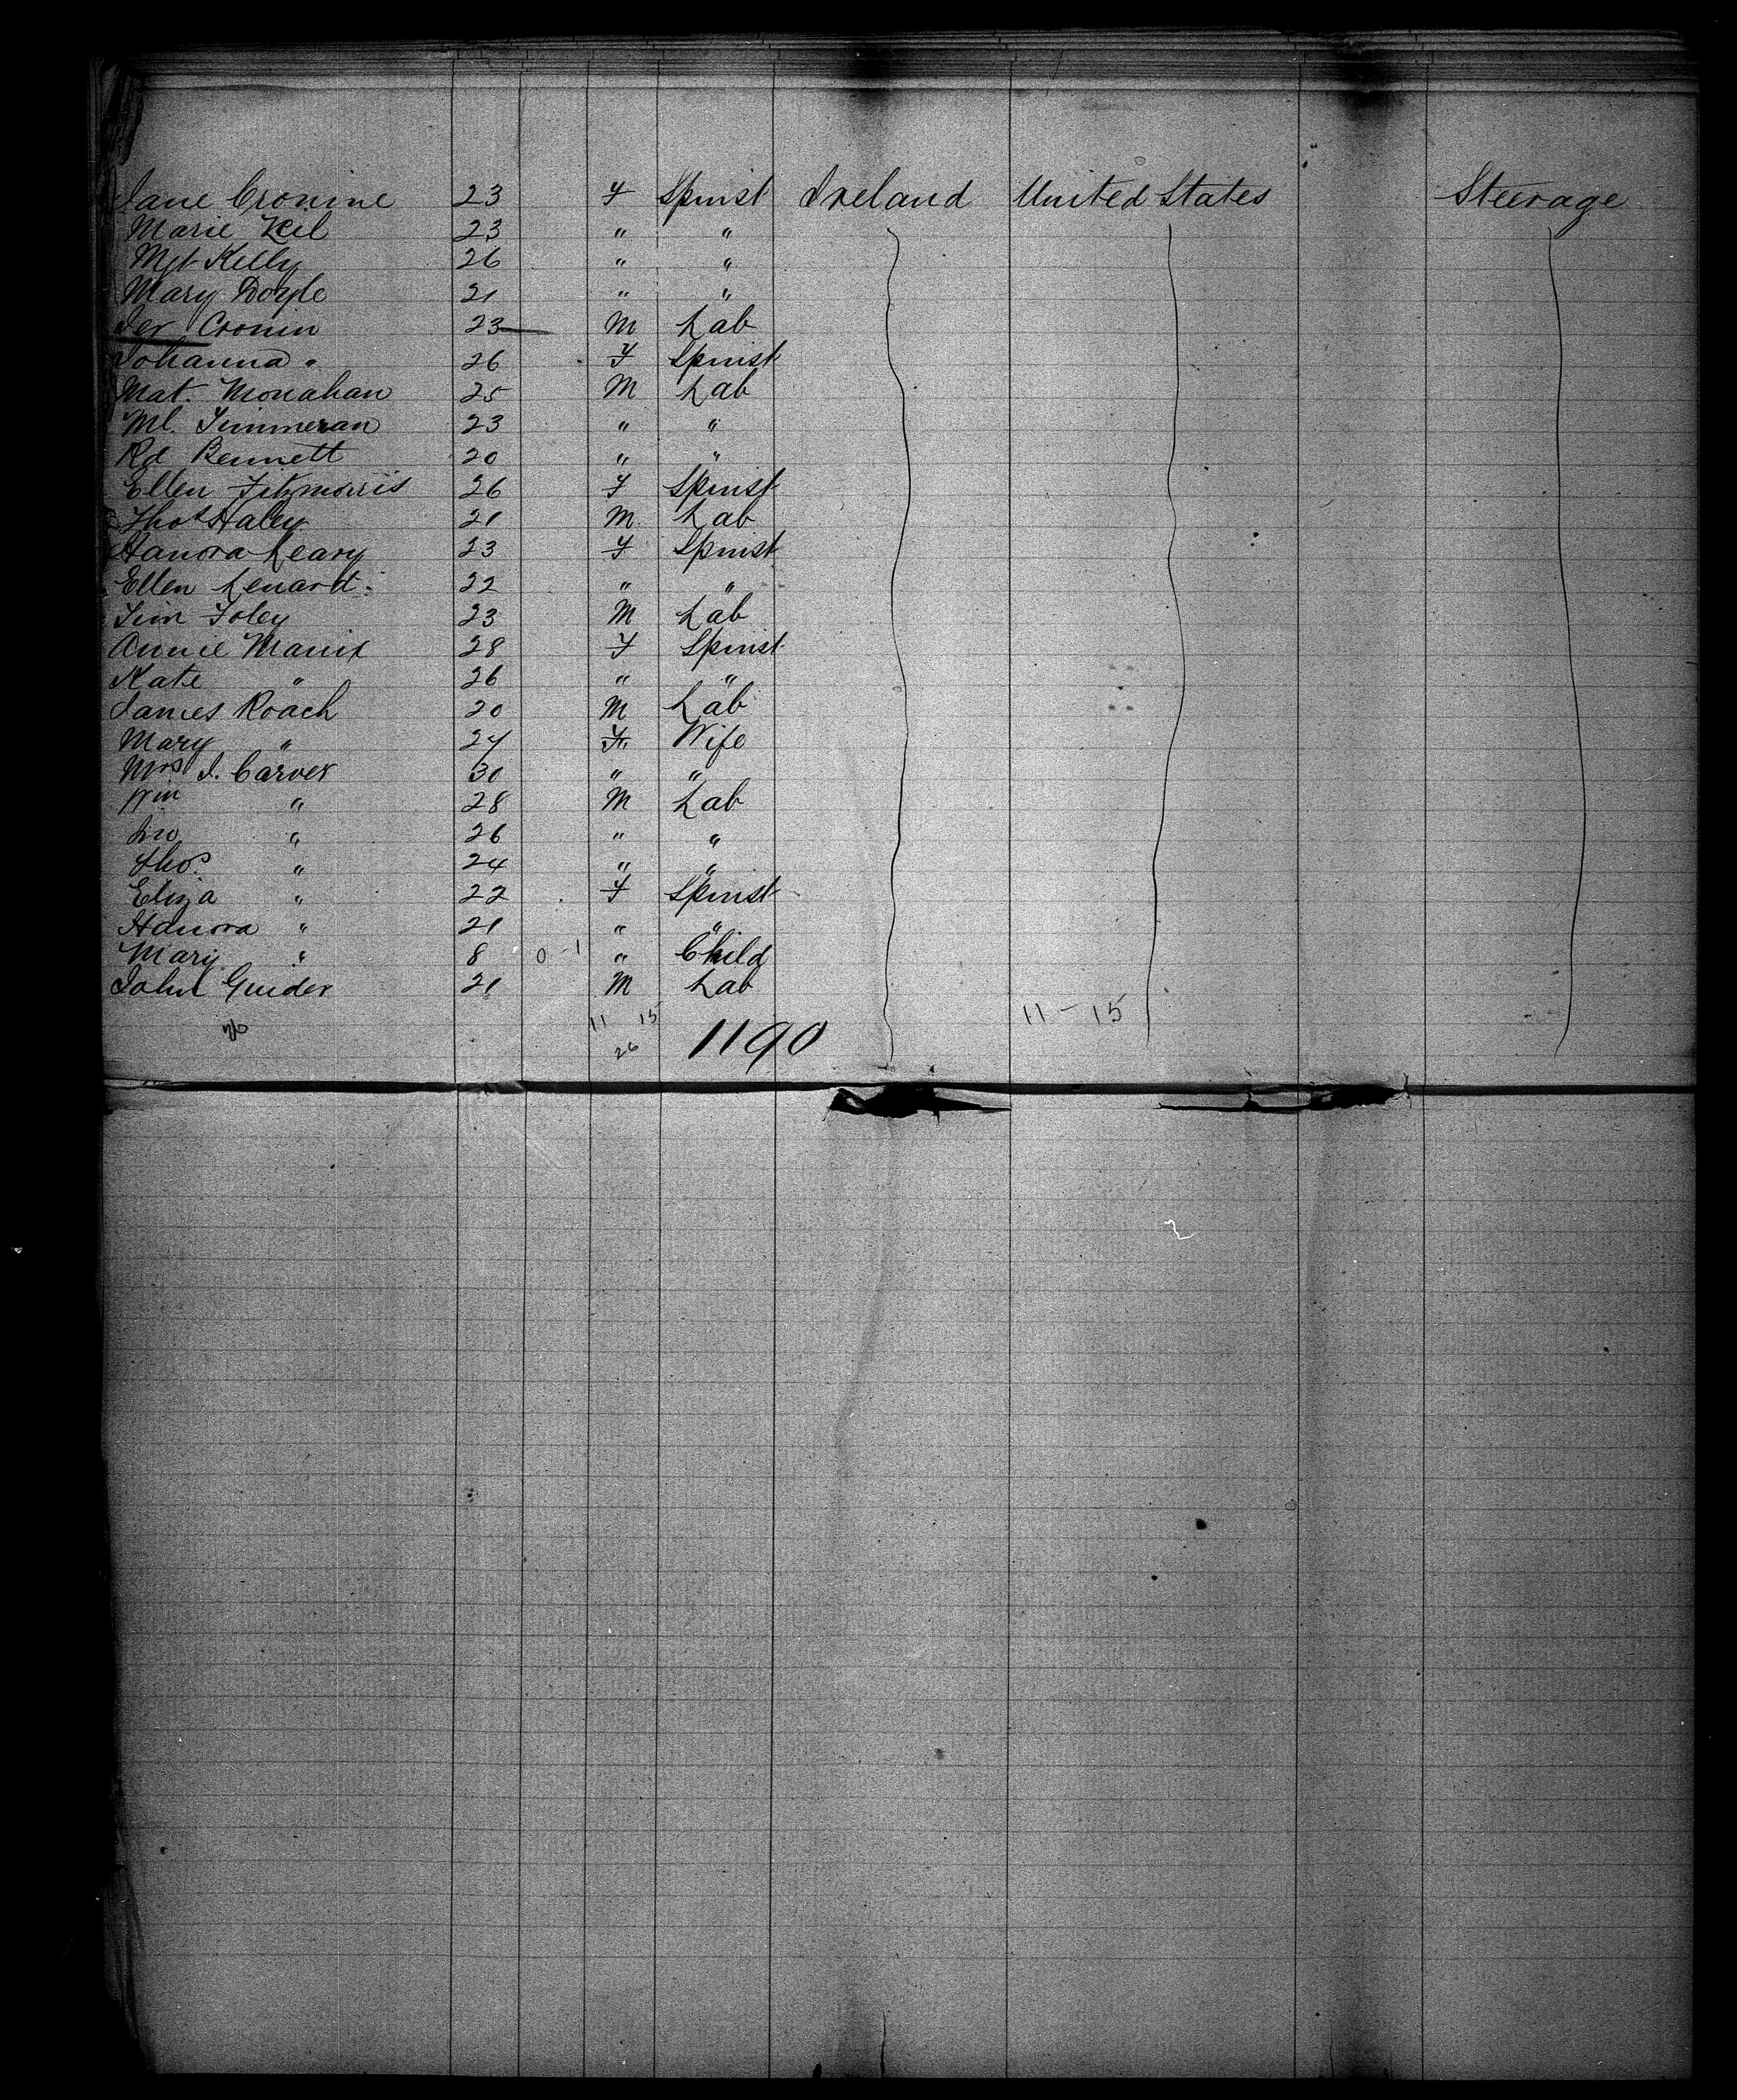 Jane Cronine 23 F Spinst Ireland United States Steerage
Marie Keil 23 " "
Mgt Kelly 26 " "
Mary Doyle 21 " "
Jer Cronin 23 M Lab
Johanna " 26 F Spinst
Mat. Monahan 25 M Lab
Ml. Timmeran 23 " "
Rd Bennett 20 " "
Ellen Fitzmorris 26 F Spinst
Thos Haley 21 M Lab
Hanora Leary 23 F Spinst
Ellen Lenard 22 " "
Tim Foley 23 M Lab
Annie Manix 28 F Spinst
Kate " 26 " "
James Roach 20 M Lab
Mary " 24 F Wife
Mrs J. Carver 30 " "
Wm " 28 M Lab
Jno " 26 " "
Thos " 24 " "
Eliza " 22 F Spinst
Hanora " 21 " "
Mary " 8 0-1 " Child
John Guider 21 M Lab
26 11 15 11-15
26 1190